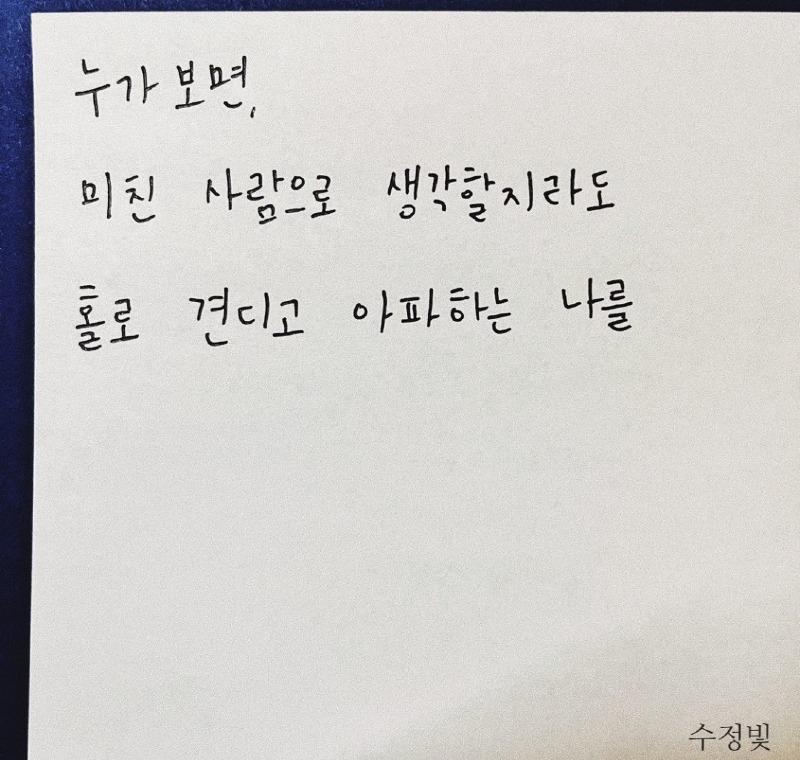 누가 보면,
미친 사람으로 생각할지라도
홀로 견디고 아파하는 나를
수정빛